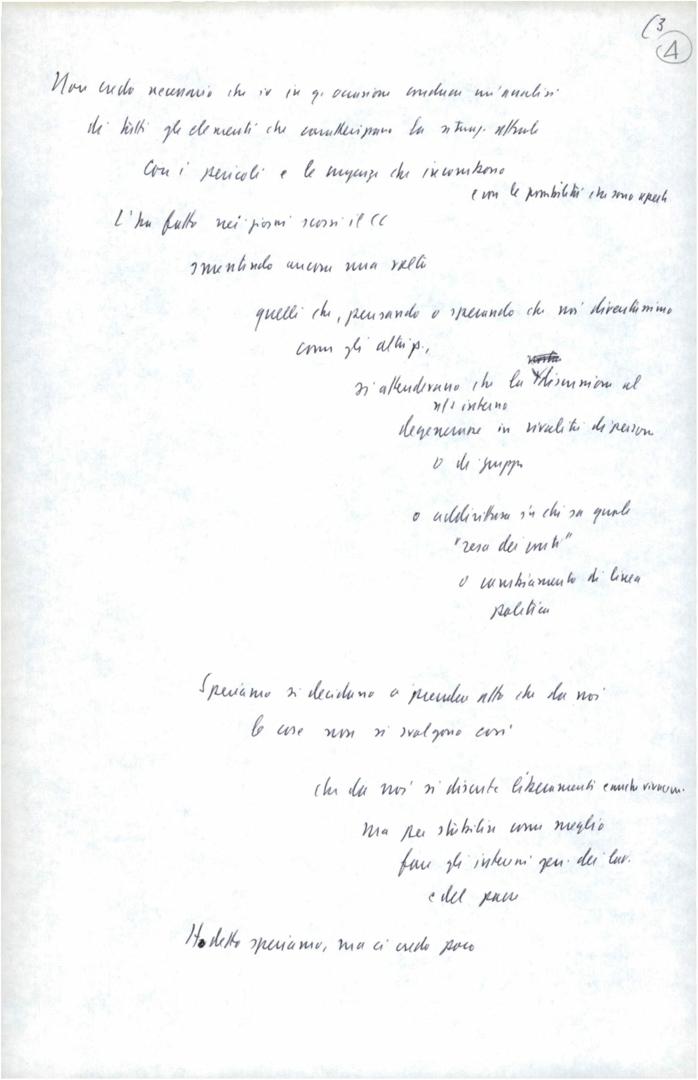 (3
4
Non credo necessario che io in q. occasione conduca un'analisi
di tutti gli elementi che caratterizzano la situaz. attuale
con i pericoli e le urgenze che incombono
e con le possibilità che sono aperte
L'ha fatto nei giorni scorsi il CC
smentendo ancora una volta
quelli che, pensando o sperando che noi diventissimo
come gli altri p.,
si attendevano che la discussione al
n/s interno
degenerasse in rivalità di persone
o di gruppi
o addirittura in chi sa quale
"resa dei conti"
o cambiamento di linea
politica
Speriamo si decidano a prender atto che da noi
le cose non si svolgono così
che da noi si discute liberamente e anche vivacem.
ma per stabilire come meglio
fare gli interessi gen. dei lav.
e del paese
Ho detto speriamo, ma ci credo poco